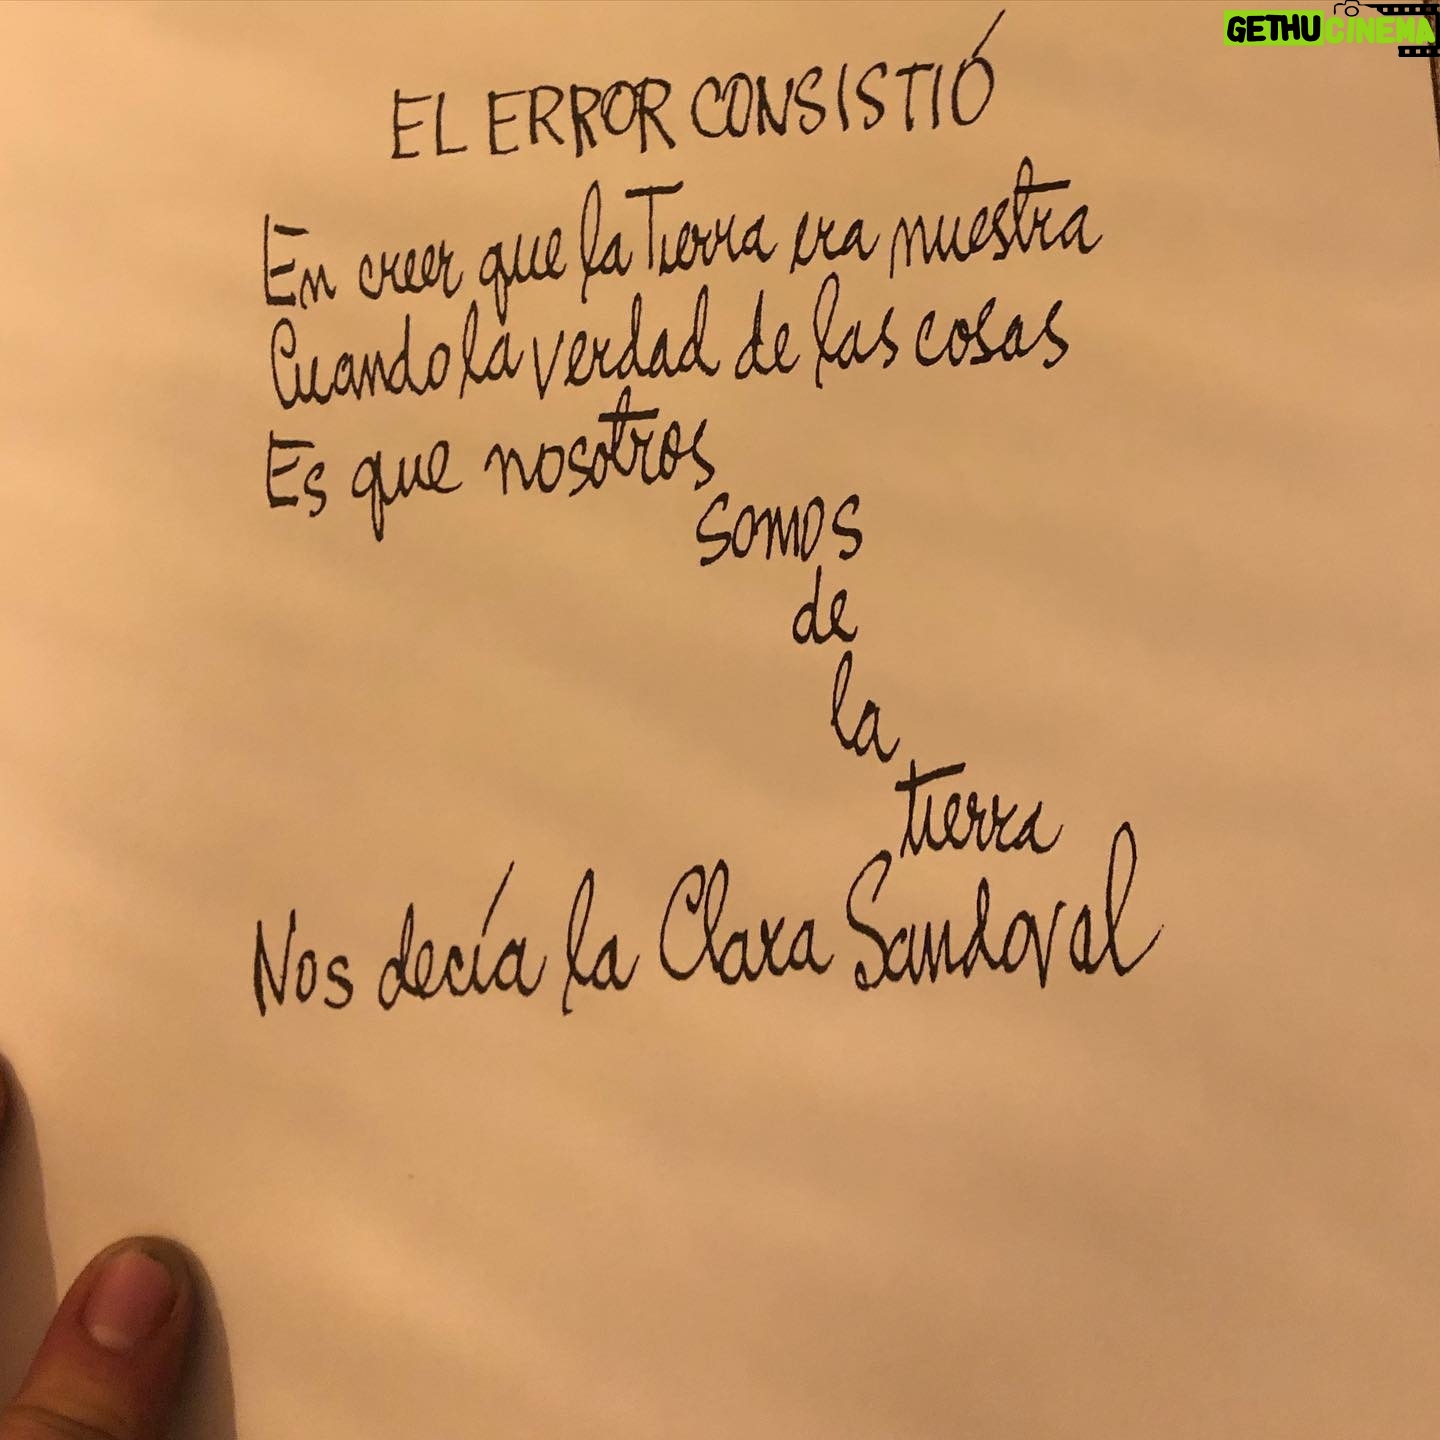 GETHU CINEMA
EL ERROR CONSISTIÓ
En creer que la Tierra era nuestra
Cuando la verdad de las cosas
Es que nosotros
somos
de
la
tierra
Nos decía la Clara Sandoval